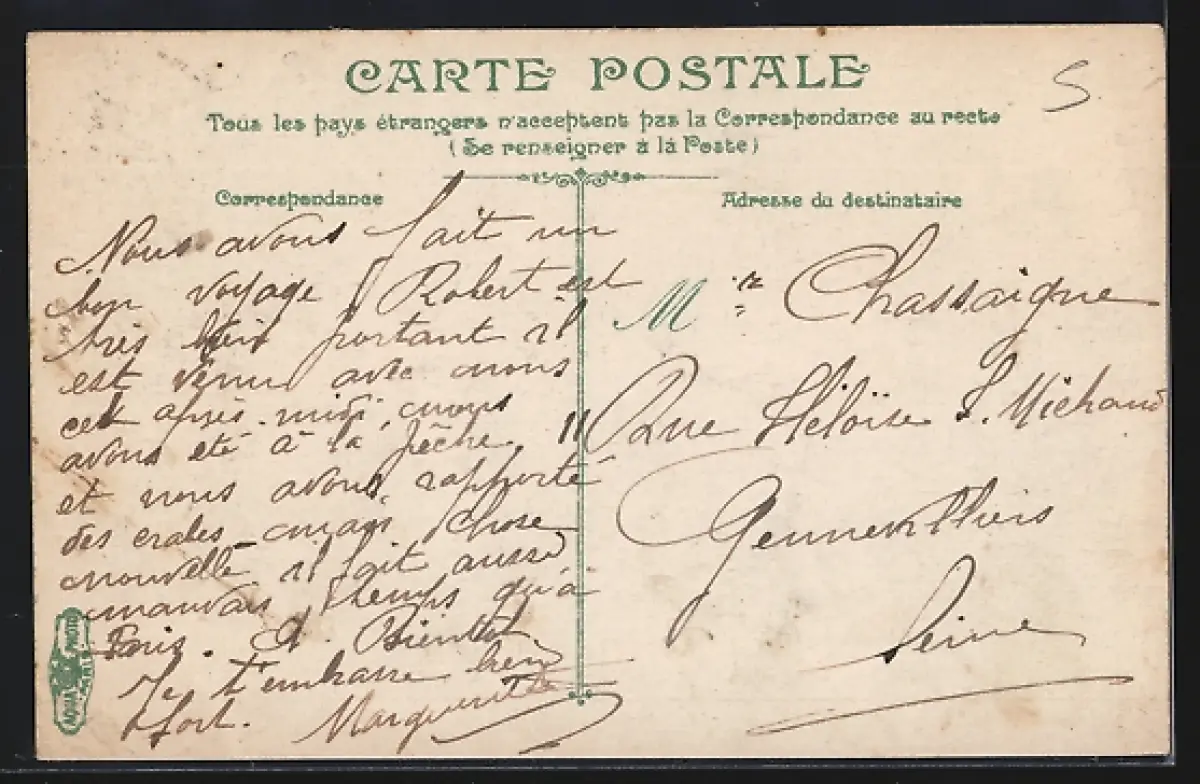 CARTE POSTALE
Tous les pays étrangers n'acceptent pas la Correspondance au recto
(Se renseigner à là Poste)
Correspondance
Adresse du destinataire
S
Nous avons fait un
bon voyage Robert est
très bien portant il
est venu avec nous
cet après-midi, nous
avons été à la pêche
et nous avons rapporté
des crabes mais chose
nouvelle il fait aussi
mauvais temps qu'à
Paris. A Bientot.
Je t'embrasse bien
fort. Marguerite
Mr Chassaigne
11 Rue Héloïse Michaud
Gennevilliers
Seine
AQUA PHOTO
PARIS